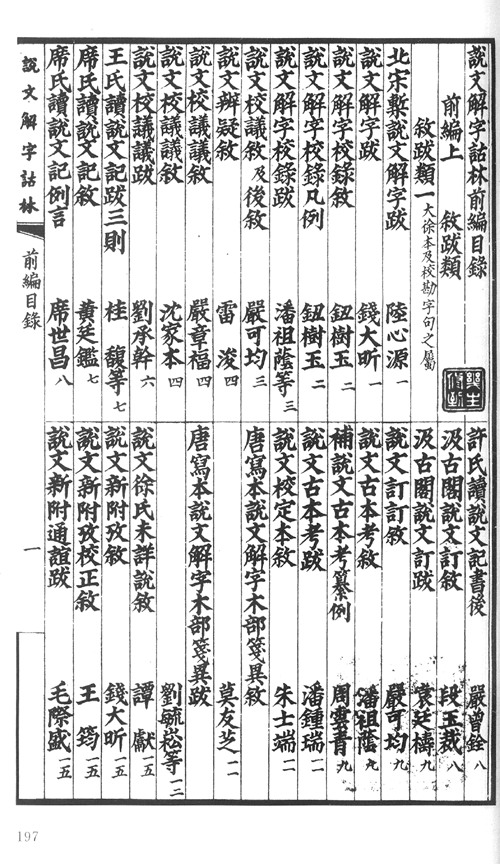 說文解字詁林前編目錄
前編上 敘跋類
敘跋類一 大徐本及校勘字句之屬
北宋槧說文解字跋 陸心源 一
說文解字跋 錢大昕 一
說文解字校錄敘 鈕樹玉 二
說文解字校錄凡例 鈕樹玉 二
說文解字校錄跋 潘祖蔭等 三
說文校議敘及後敘 嚴可均 三
說文辨疑敘 雷浚 四
說文校議議敘 嚴章福 四
說文校議議敘 沈家本 四
說文校議議跋 劉承幹 六
王氏讀說文記跋三則 桂馥等 七
席氏讀說文記敘 黃廷鑑 七
席氏讀說文記例言 席世昌 八
許氏讀說文記書後 嚴曾銓 八
汲古閣說文訂敘 段玉裁 八
汲古閣說文訂跋 袁廷檮 九
說文訂訂敘 嚴可均 九
說文古本考敘 潘祖蔭 九
補說文古本考纂例 周雲青 九
說文古本考跋 潘鍾瑞 一一
說文校定本敘 朱士端 一一
唐寫本說文解字木部箋異敘 莫友芝 一一
唐寫本說文解字木部箋異跋 劉毓崧等 一二
說文徐氏未詳說敘 譚獻 一五
說文新附攷敘 錢大昕 一五
說文新附攷校正敘 王筠 一五
說文新附通誼跋 毛際盛 一五
說文解字詁林
前編目錄
一
197